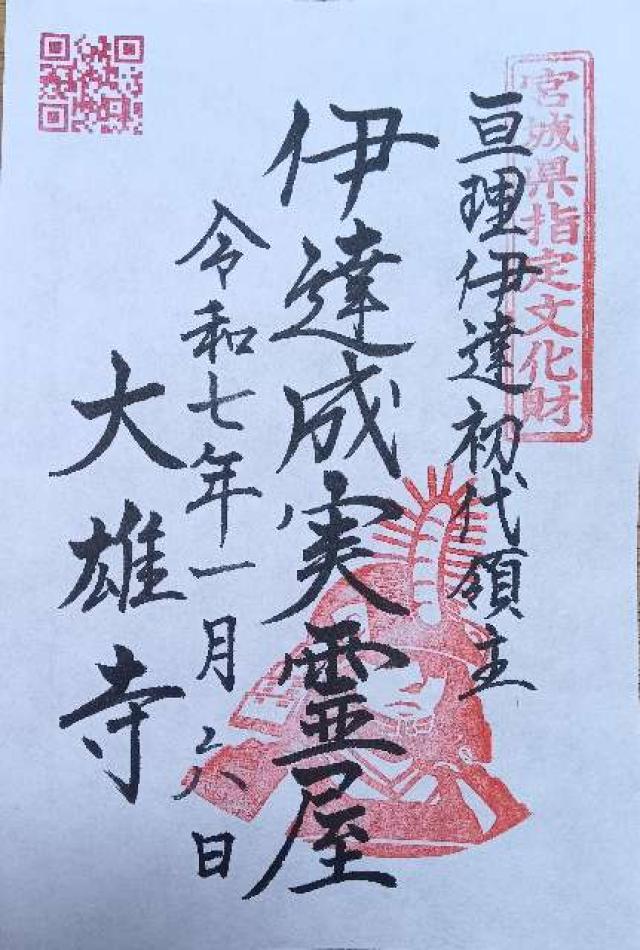 宮城県指定文化財
亘理伊達初代領主
伊達成実霊屋
令和七年一月六日
大雄寺